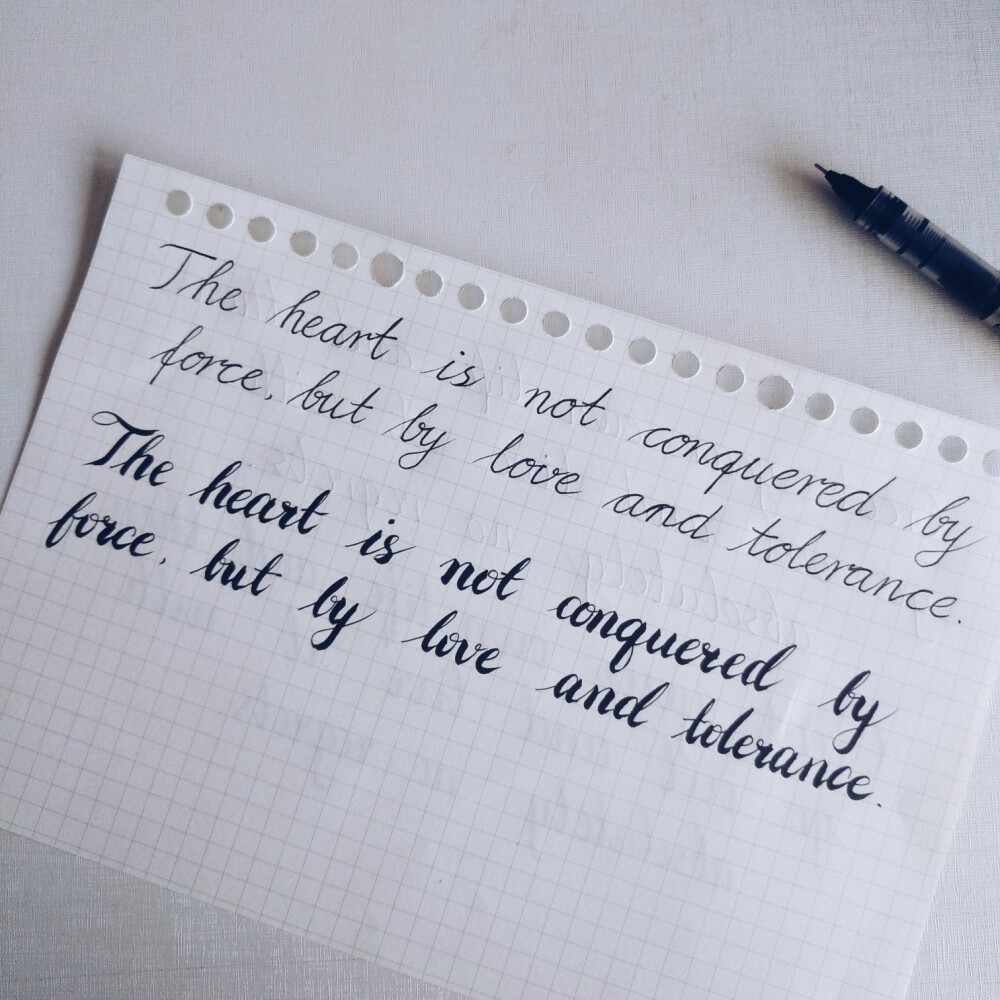 The heart is not conquered by
force, but by love and tolerance.
The heart is not conquered by
force, but by love and tolerance.